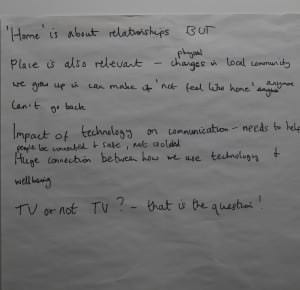 'Home' is about relationships BUT
Place is also relevant – physical changes in local community
we grew up in can make it 'not feel like home' anymore
Can't go back
Impact of technology on communication – needs to help
people be connected & safe, not isolated
Huge connection between how we use technology &
wellbeing
TV or not TV? – that is the question!